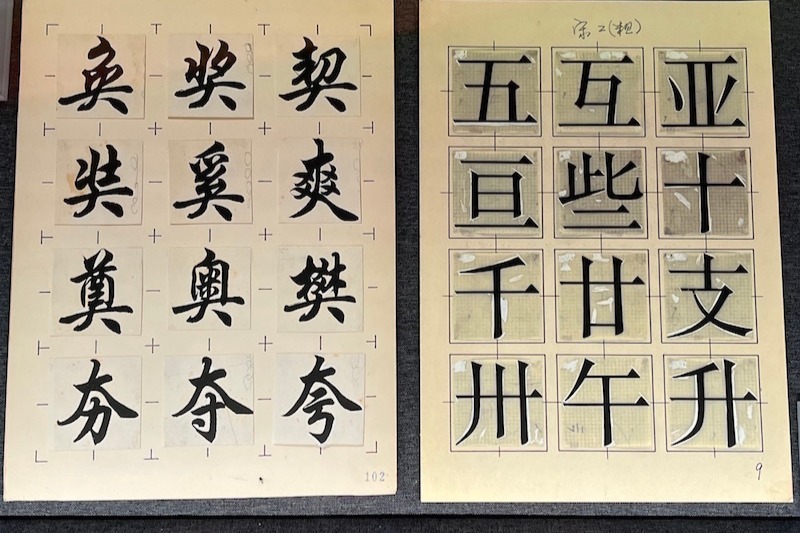 奂 奖 契
奘 奚 爽
奠 奥 樊
夯 夺 夸
102
宋二(粗)
五 互 亚
亘 些 十
千 廿 支
卅 午 升
9